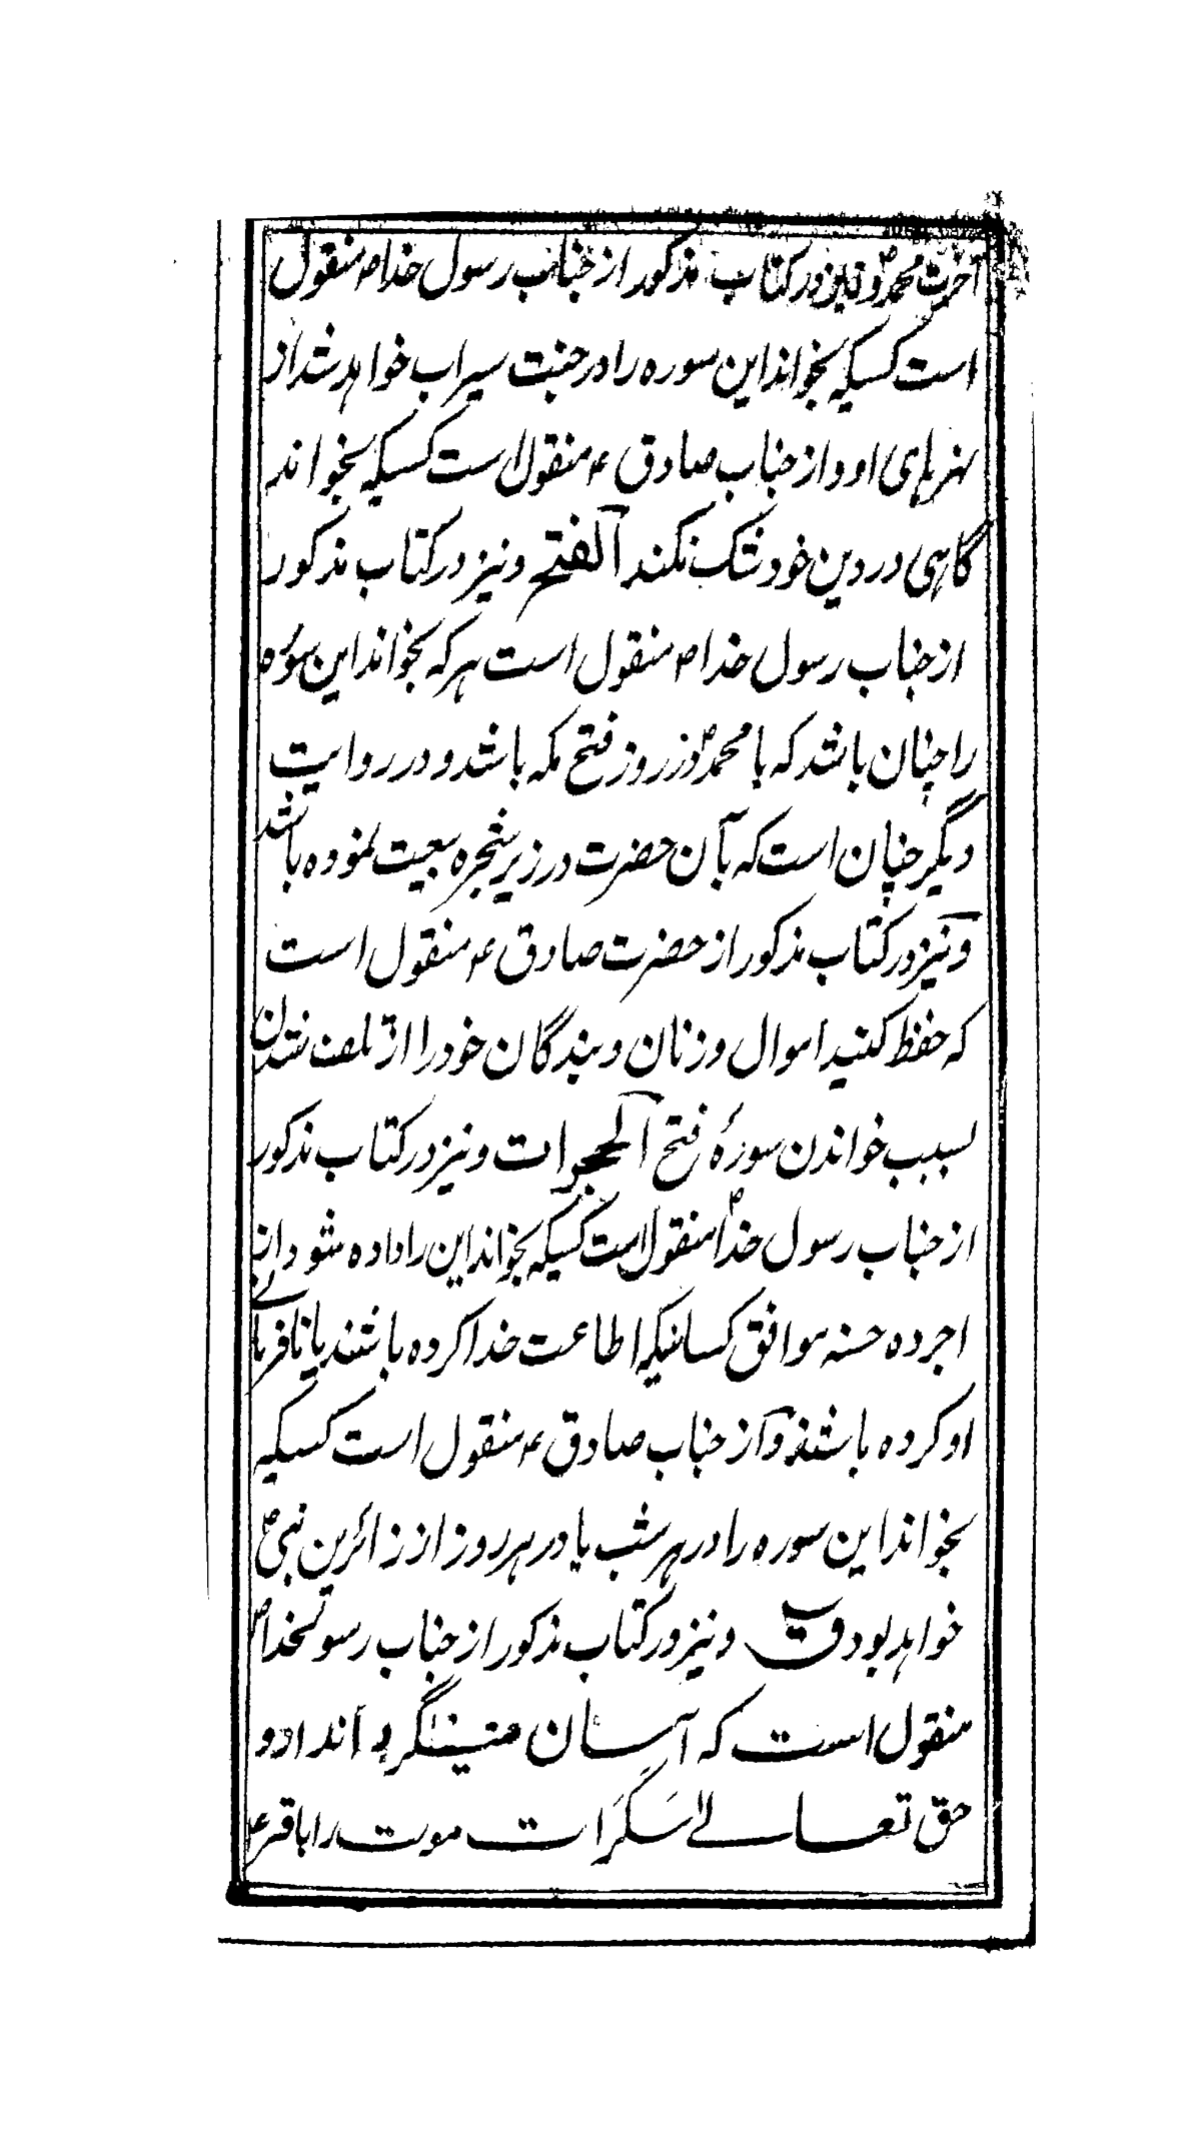 آخرت محمدؐ و نیز در کتاب مذکور از جناب رسول خدا ص منقول
است کسیکه بخواند این سوره را در جنت سیراب خواهد شد از
نهرهای او و از جناب صادق ع منقول است کسیکه بخواند
گاهی در دین خود شک نکند الفتح و نیز در کتاب مذکور
از جناب رسول خدا ص منقول است هر که بخواند این سوره
را چنان باشد که با محمدؐ در روز فتح مکه باشد و در روایت
دیگر چنان است که بآن حضرت در زیر شجره بیعت نموده باشد
و نیز در کتاب مذکور از حضرت صادق ع منقول است
که حفظ کنید اموال و زنان و بندگان خود را از تلف شدن
بسبب خواندن سورهٔ فتح الحجرات و نیز در کتاب مذکور
از جناب رسول خداؐ منقول است کسیکه بخواند این را داده شود از
اجر ده حسنه موافق کسانیکه اطاعت خدا کرده باشند یا نافرمانے
او کرده باشند و از جناب صادق ع منقول است کسیکه
بخواند این سوره را در هر شب یا در هر روز از زائرین نبیؐ
خواهد بود ق و نیز در کتاب مذکور از جناب رسولخداؐ
منقول است که آسان میگرداند او و
حق تعالے سکرات موت را باقر ع